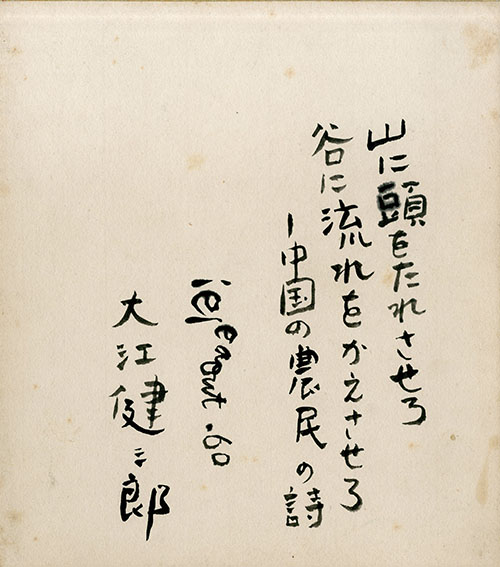 山に頭をたれさせろ
谷に流れをかえさせろ
ー中国の農民の詩
大江健三郎